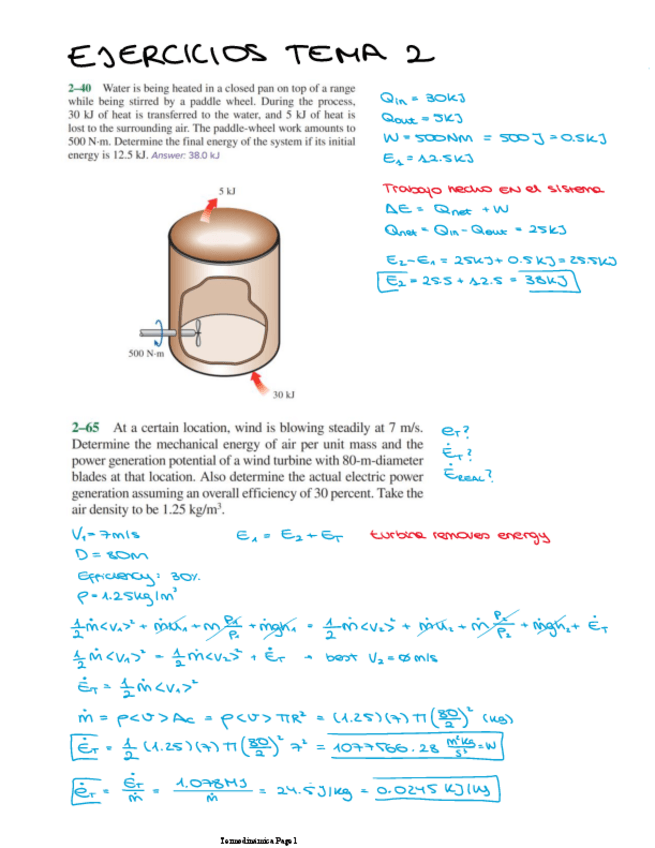 EJERCICIOS TEMA 2
2–40 Water is being heated in a closed pan on top of a range
while being stirred by a paddle wheel. During the process,
30 kJ of heat is transferred to the water, and 5 kJ of heat is
lost to the surrounding air. The paddle-wheel work amounts to
500 N·m. Determine the final energy of the system if its initial
energy is 12.5 kJ. Answer: 38.0 kJ
Qin = 30KJ
Qout = 5KJ
W = 500NM = 500 J = 0.5KJ
E₁ = 12.5KJ
Trabajo hecho EN el sistema
ΔE = Qnet + W
Qnet = Qin - Qout = 25KJ
E₂-E₁ = 25KJ + 0.5KJ = 25.5KJ
E₂ = 25.5 + 12.5 = 38KJ
5 kJ
500 N·m
30 kJ
2–65 At a certain location, wind is blowing steadily at 7 m/s.
Determine the mechanical energy of air per unit mass and the
power generation potential of a wind turbine with 80-m-diameter
blades at that location. Also determine the actual electric power
generation assuming an overall efficiency of 30 percent. Take the
air density to be 1.25 kg/m³.
eT?
ĖT?
ĖREAL?
V₁ = 7m/s
D = 80M
Efficiency: 30%
ρ = 1.25kg/m³
E₁ = E₂ + ET turbine removes energy
½ṁ<V₁>² + ṁu₁ + ṁ P₁/ρ₁ + ṁgh₁ = ½ṁ<V₂>² + ṁu₂ + ṁ P₂/ρ₂ + ṁgh₂ + ĖT
½ṁ<V₁>² = ½ṁ<V₂>² + ĖT → best V₂ = 0 m/s
ĖT = ½ṁ<V₁>²
ṁ = ρ<v>Ac = ρ<v>πR² = (1.25)(7)π(80/2)² (kg)
ĖT = ½(1.25)(7)π(80/2)² 7² = 1077566.28 m²kg/s³ = W
ėT = ĖT/ṁ = 1.078MJ/ṁ = 24.5J/kg = 0.0245 KJ/kg
Termodinamica Page 1